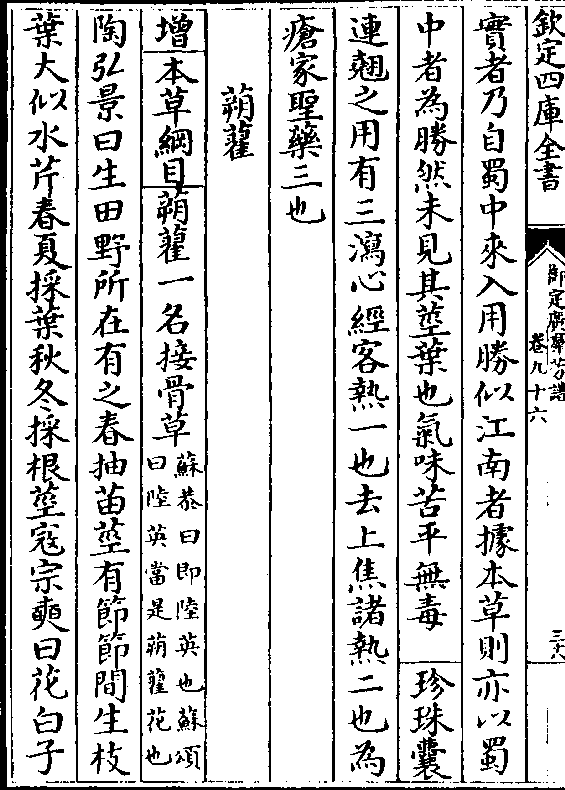 欽定四庫全書
御定廣羣芳譜
卷九十六
三十六
實者乃自蜀中來入用勝似江南者據本草則亦以蜀
中者為勝然未見其莖葉也氣味苦平無毒 珍珠囊
連翹之用有三瀉心經客熱一也去上焦諸熱二也為
瘡家聖藥三也
蒴藋
增本草綱目蒴藋一名接骨草蘇恭曰即陸英也蘇頌
曰陸英當是蒴藋花也
陶弘景曰生田野所在有之春抽苗莖有節節間生枝
葉大似水芹春夏採葉秋冬採根莖寇宗奭曰花白子